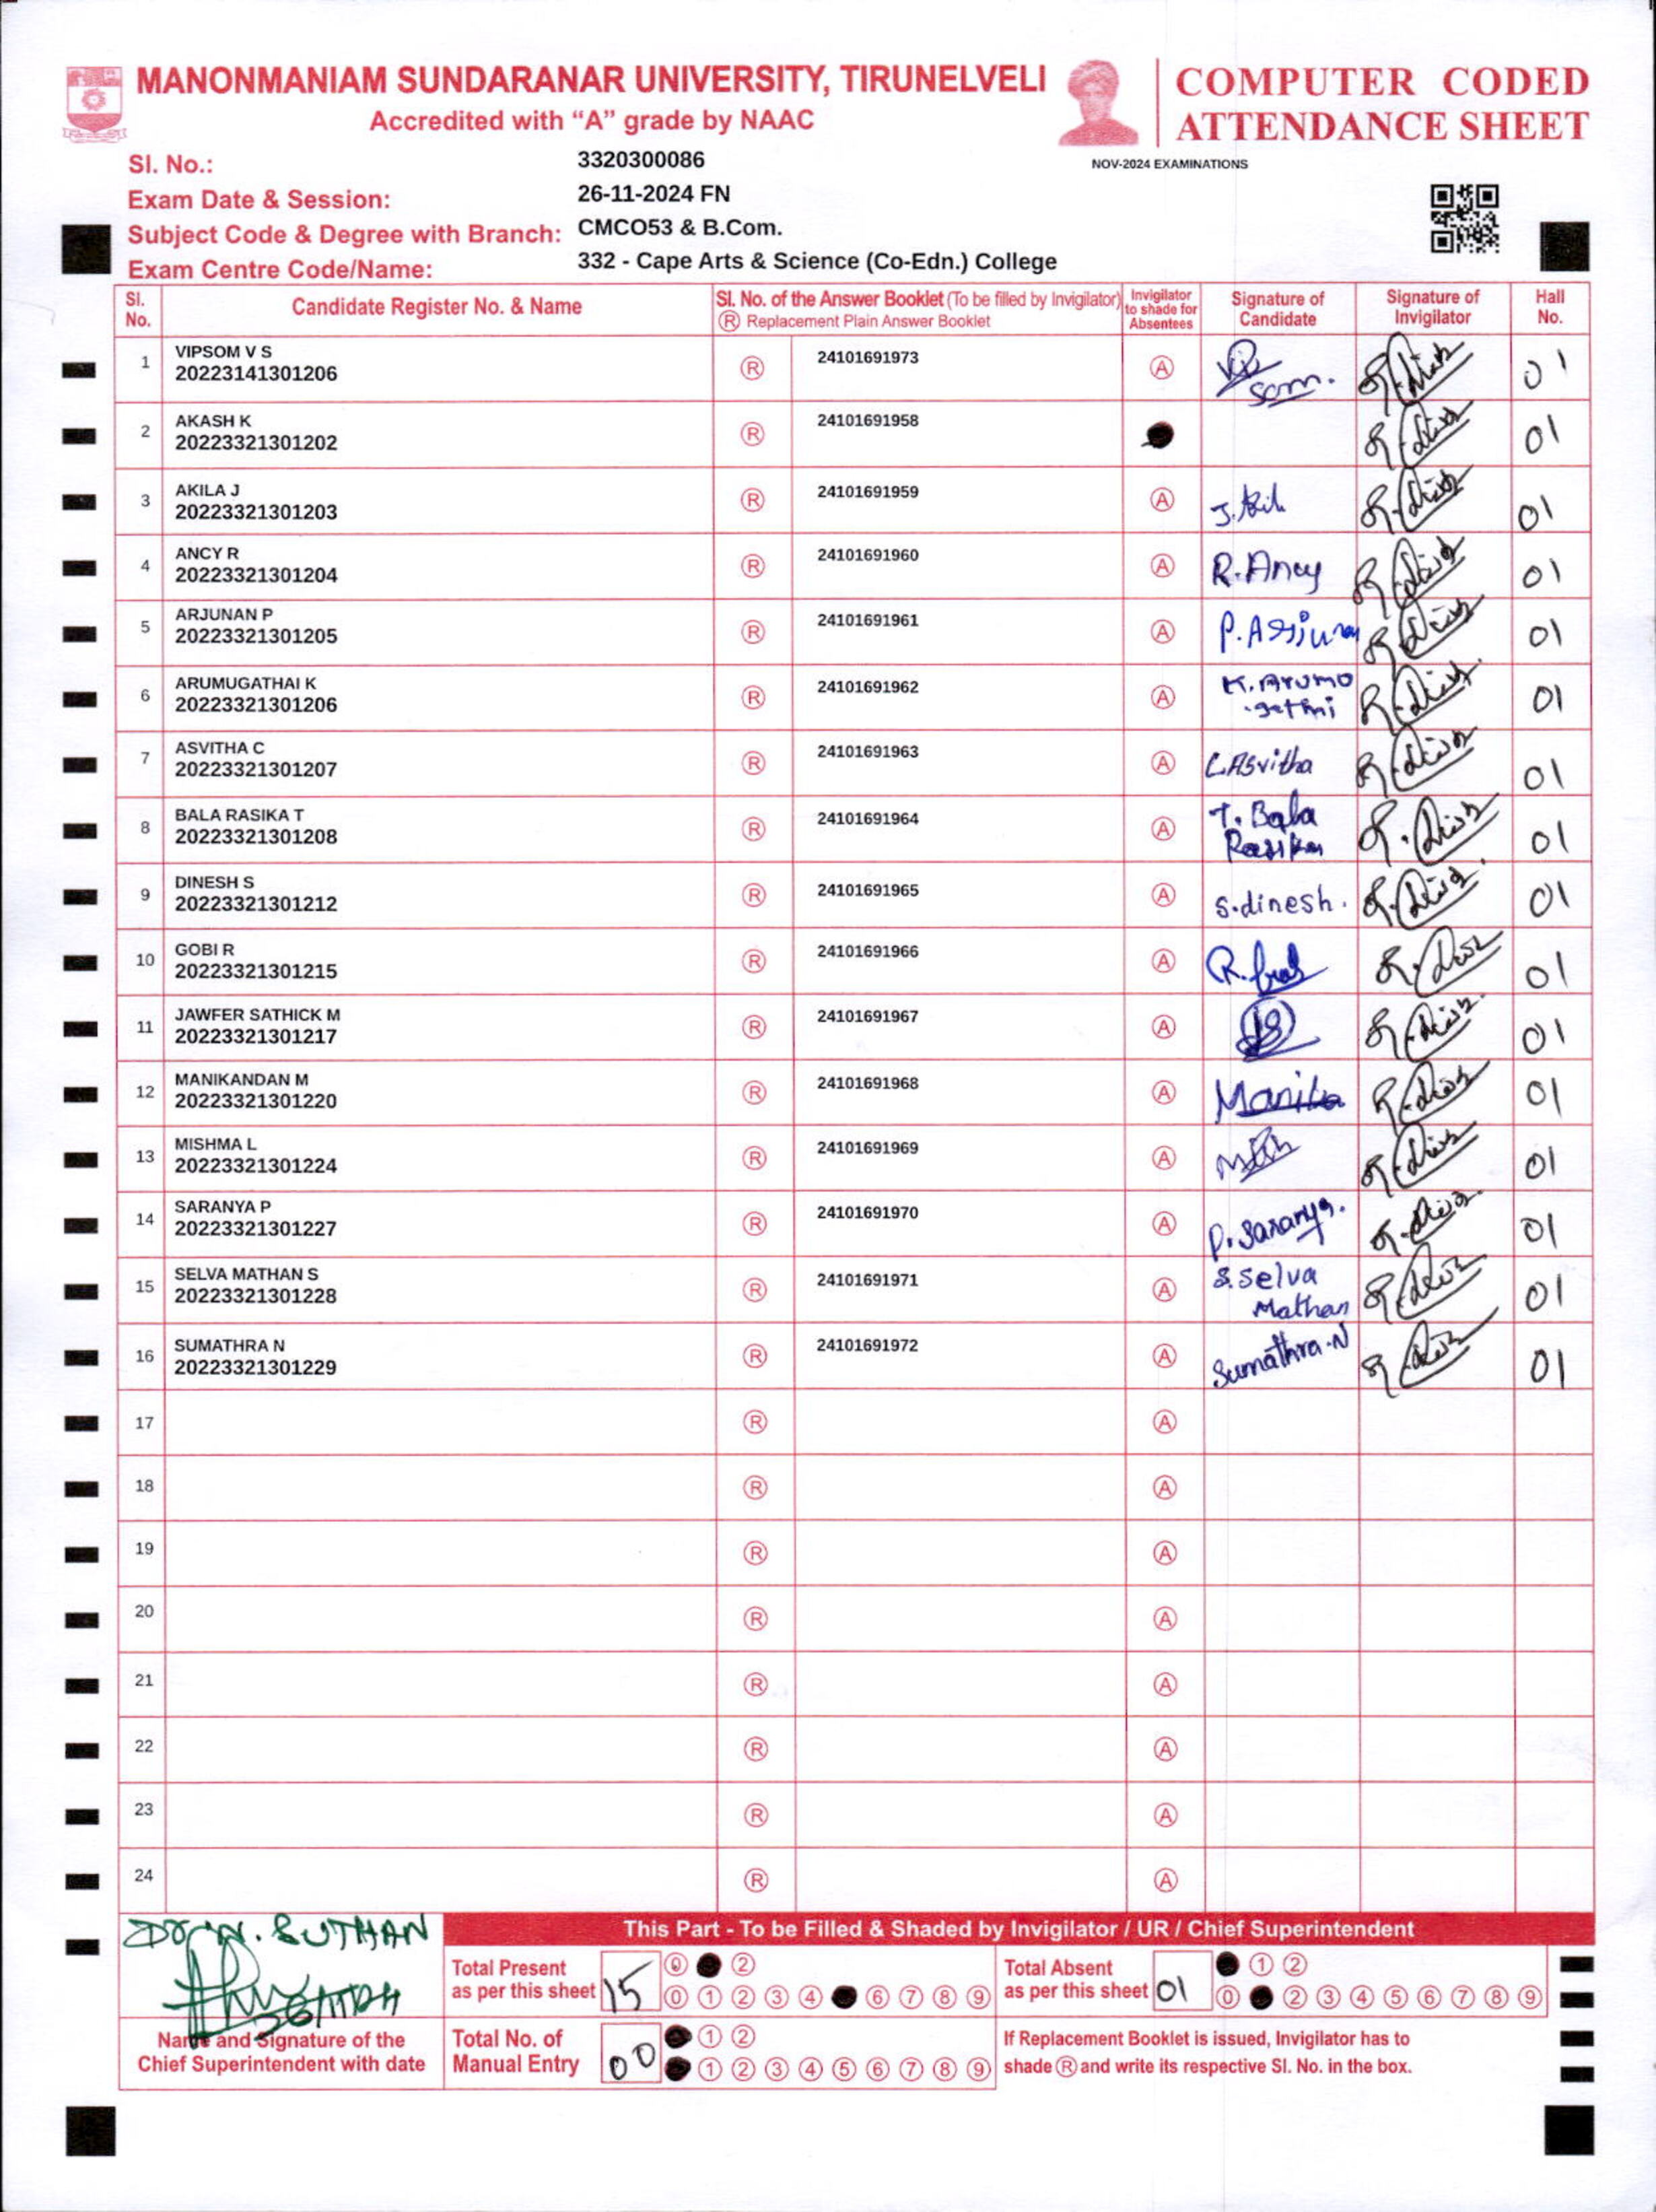 MANONMANIAM SUNDARANAR UNIVERSITY, TIRUNELVELI
Accredited with “A” grade by NAAC
COMPUTER CODED
ATTENDANCE SHEET
NOV-2024 EXAMINATIONS
Sl. No.: 3320300086
Exam Date & Session: 26-11-2024 FN
Subject Code & Degree with Branch: CMCO53 & B.Com.
Exam Centre Code/Name: 332 - Cape Arts & Science (Co-Edn.) College
Sl. No. Candidate Register No. & Name Sl. No. of the Answer Booklet (To be filled by Invigilator) Ⓡ Replacement Plain Answer Booklet Invigilator to shade for Absentees Signature of Candidate Signature of Invigilator Hall No.
1 VIPSOM V S 20223141301206 Ⓡ 24101691973 Ⓐ 01
2 AKASH K 20223321301202 Ⓡ 24101691958 01
3 AKILA J 20223321301203 Ⓡ 24101691959 Ⓐ 01
4 ANCY R 20223321301204 Ⓡ 24101691960 Ⓐ R.Ancy 01
5 ARJUNAN P 20223321301205 Ⓡ 24101691961 Ⓐ 01
6 ARUMUGATHAI K 20223321301206 Ⓡ 24101691962 Ⓐ 01
7 ASVITHA C 20223321301207 Ⓡ 24101691963 Ⓐ C.Asvitha 01
8 BALA RASIKA T 20223321301208 Ⓡ 24101691964 Ⓐ T. Bala Rasika 01
9 DINESH S 20223321301212 Ⓡ 24101691965 Ⓐ S.dinesh. 01
10 GOBI R 20223321301215 Ⓡ 24101691966 Ⓐ 01
11 JAWFER SATHICK M 20223321301217 Ⓡ 24101691967 Ⓐ 01
12 MANIKANDAN M 20223321301220 Ⓡ 24101691968 Ⓐ 01
13 MISHMA L 20223321301224 Ⓡ 24101691969 Ⓐ 01
14 SARANYA P 20223321301227 Ⓡ 24101691970 Ⓐ P. Saranya. 01
15 SELVA MATHAN S 20223321301228 Ⓡ 24101691971 Ⓐ S.Selva Mathan 01
16 SUMATHRA N 20223321301229 Ⓡ 24101691972 Ⓐ Sumathra.N 01
17 Ⓡ Ⓐ
18 Ⓡ Ⓐ
19 Ⓡ Ⓐ
20 Ⓡ Ⓐ
21 Ⓡ Ⓐ
22 Ⓡ Ⓐ
23 Ⓡ Ⓐ
24 Ⓡ Ⓐ
SUTHAN
Name and Signature of the
Chief Superintendent with date
This Part - To be Filled & Shaded by Invigilator / UR / Chief Superintendent
Total Present as per this sheet 15
0 2
0 1 2 3 4 6 7 8 9
Total Absent as per this sheet 01
1 2
0 2 3 4 5 6 7 8 9
Total No. of Manual Entry 00
1 2
1 2 3 4 5 6 7 8 9
If Replacement Booklet is issued, Invigilator has to
shade Ⓡ and write its respective Sl. No. in the box.